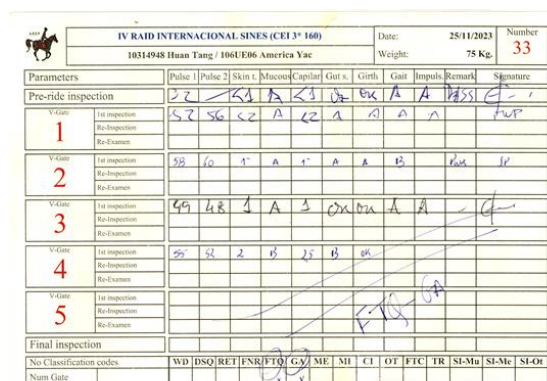 IV RAID INTERNACIONAL SINES (CEI 3* 160) Date: 25/11/2023 Number
10314948 Huan Tang / 106UE06 America Yac Weight: 75 Kg. 33
Parameters Pulse 1 Pulse 2 Skin t. Mucous Capilar Gut s. Girth Gait Impuls. Remark Signature
Pre-ride inspection 32 <1 A <1 OK A A Pass
V-Gate 1st inspection 52 56 <2 A <2 A A A A
1 Re-Inspection
Re-Examen
V-Gate 1st inspection 58 60 1" A 1" A A B
2 Re-Inspection
Re-Examen
V-Gate 1st inspection 49 48 1 A 1 OK OK A A
3 Re-Inspection
Re-Examen
V-Gate 1st inspection 55 52 2 B 25 B OK
4 Re-Inspection
Re-Examen
V-Gate 1st inspection
5 Re-Inspection
Re-Examen
FTQ-GA
Final inspection
No Classification codes WD DSQ RET FNR FTQ GA ME MI CI OT FTC TR SI-Mu SI-Me SI-Ot
Num Gate